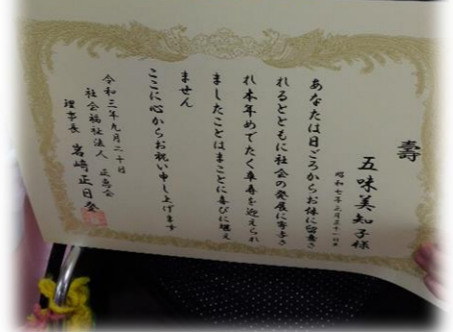 壽
五味美知子様
昭和七年三月三十一日生
あなたは日ごろからお体に留意さ
れるとともに社会の発展に寄与さ
れ本年めでたく卒寿を迎えられ
ましたことはまことに喜びに堪え
ません
ここに心からお祝い申し上げます
令和三年九月二十日
社会福祉法人
理事長 岩崎正日登